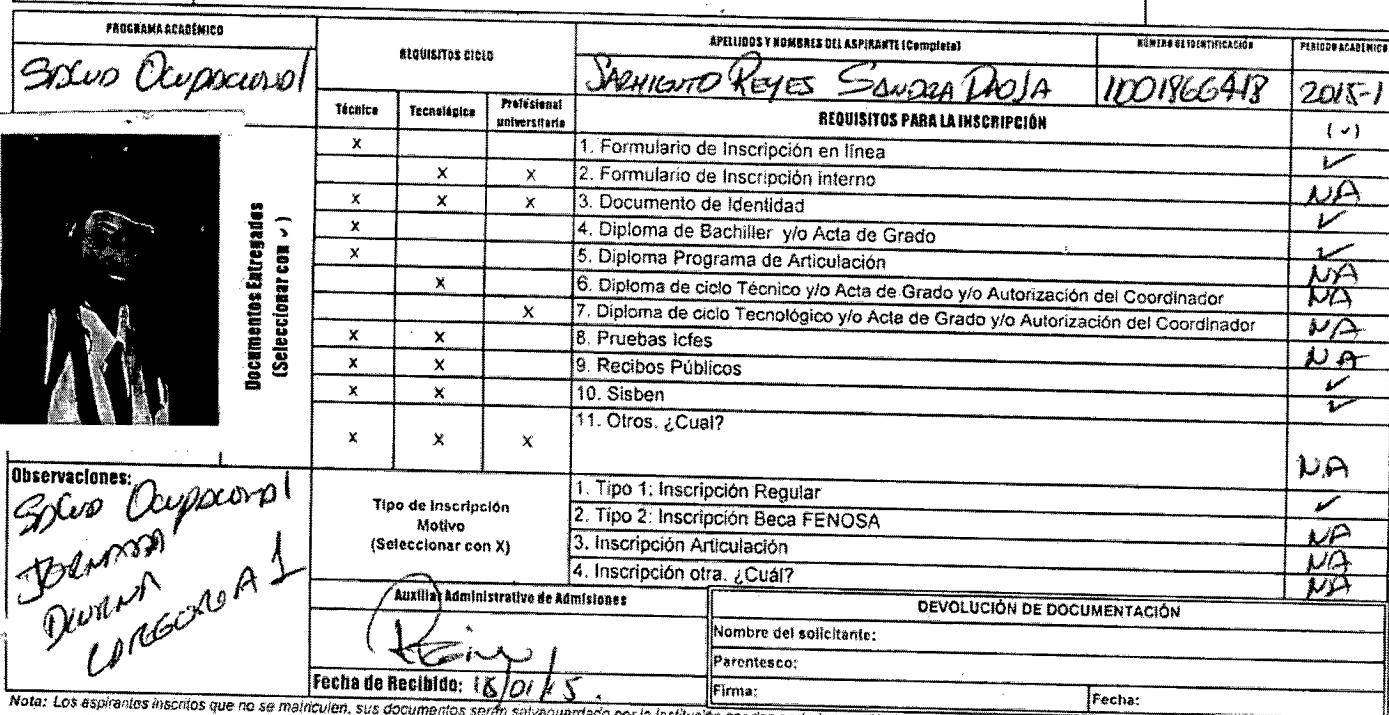 PROGRAMA ACADÉMICO
REQUISITOS CICLO
APELLIDOS Y NOMBRES DEL ASPIRANTE (Completo)
NÚMERO DE IDENTIFICACIÓN
PERIODO ACADÉMICO
Salud Ocupacional
SARMIENTO REYES SANDRA PAOLA
1001866418
2015-1
Técnico
Tecnológico
Profesional universitario
REQUISITOS PARA LA INSCRIPCIÓN
(✓)
Documentos Entregados
(Seleccionar con ✓)
X 1. Formulario de Inscripción en línea ✓
X X 2. Formulario de Inscripción interno NA
X X X 3. Documento de Identidad ✓
X 4. Diploma de Bachiller y/o Acta de Grado ✓
X 5. Diploma Programa de Articulación NA
X 6. Diploma de ciclo Técnico y/o Acta de Grado y/o Autorización del Coordinador NA
X 7. Diploma de ciclo Tecnológico y/o Acta de Grado y/o Autorización del Coordinador NA
X X 8. Pruebas Icfes NA
X X 9. Recibos Públicos ✓
X X 10. Sisben ✓
X X X 11. Otros. ¿Cual? NA
Observaciones:
Salud Ocupacional
JORNADA
DIURNA
CATEGORIA 1
Tipo de Inscripción
Motivo
(Seleccionar con X)
1. Tipo 1: Inscripción Regular ✓
2. Tipo 2: Inscripción Beca FENOSA NA
3. Inscripción Articulación NA
4. Inscripción otra. ¿Cuál? NA
Auxiliar Administrativo de Admisiones
Fecha de Recibido: 15/01/15.
DEVOLUCIÓN DE DOCUMENTACIÓN
Nombre del solicitante:
Parentesco:
Firma:
Fecha:
Nota: Los aspirantes inscritos que no se matriculen, sus documentos serán salvaguardado por la institución